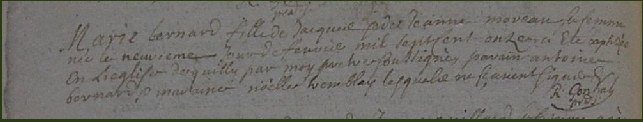 Marie bernard fille de Jacques et de Jeanne moreau sa femme
née le neuvieme jour de fevrier mil sept sent onze a Ete baptisée
En Leglise par moy parain antoine
bernard maraine noelle tremblay lesquels ne scavent signer